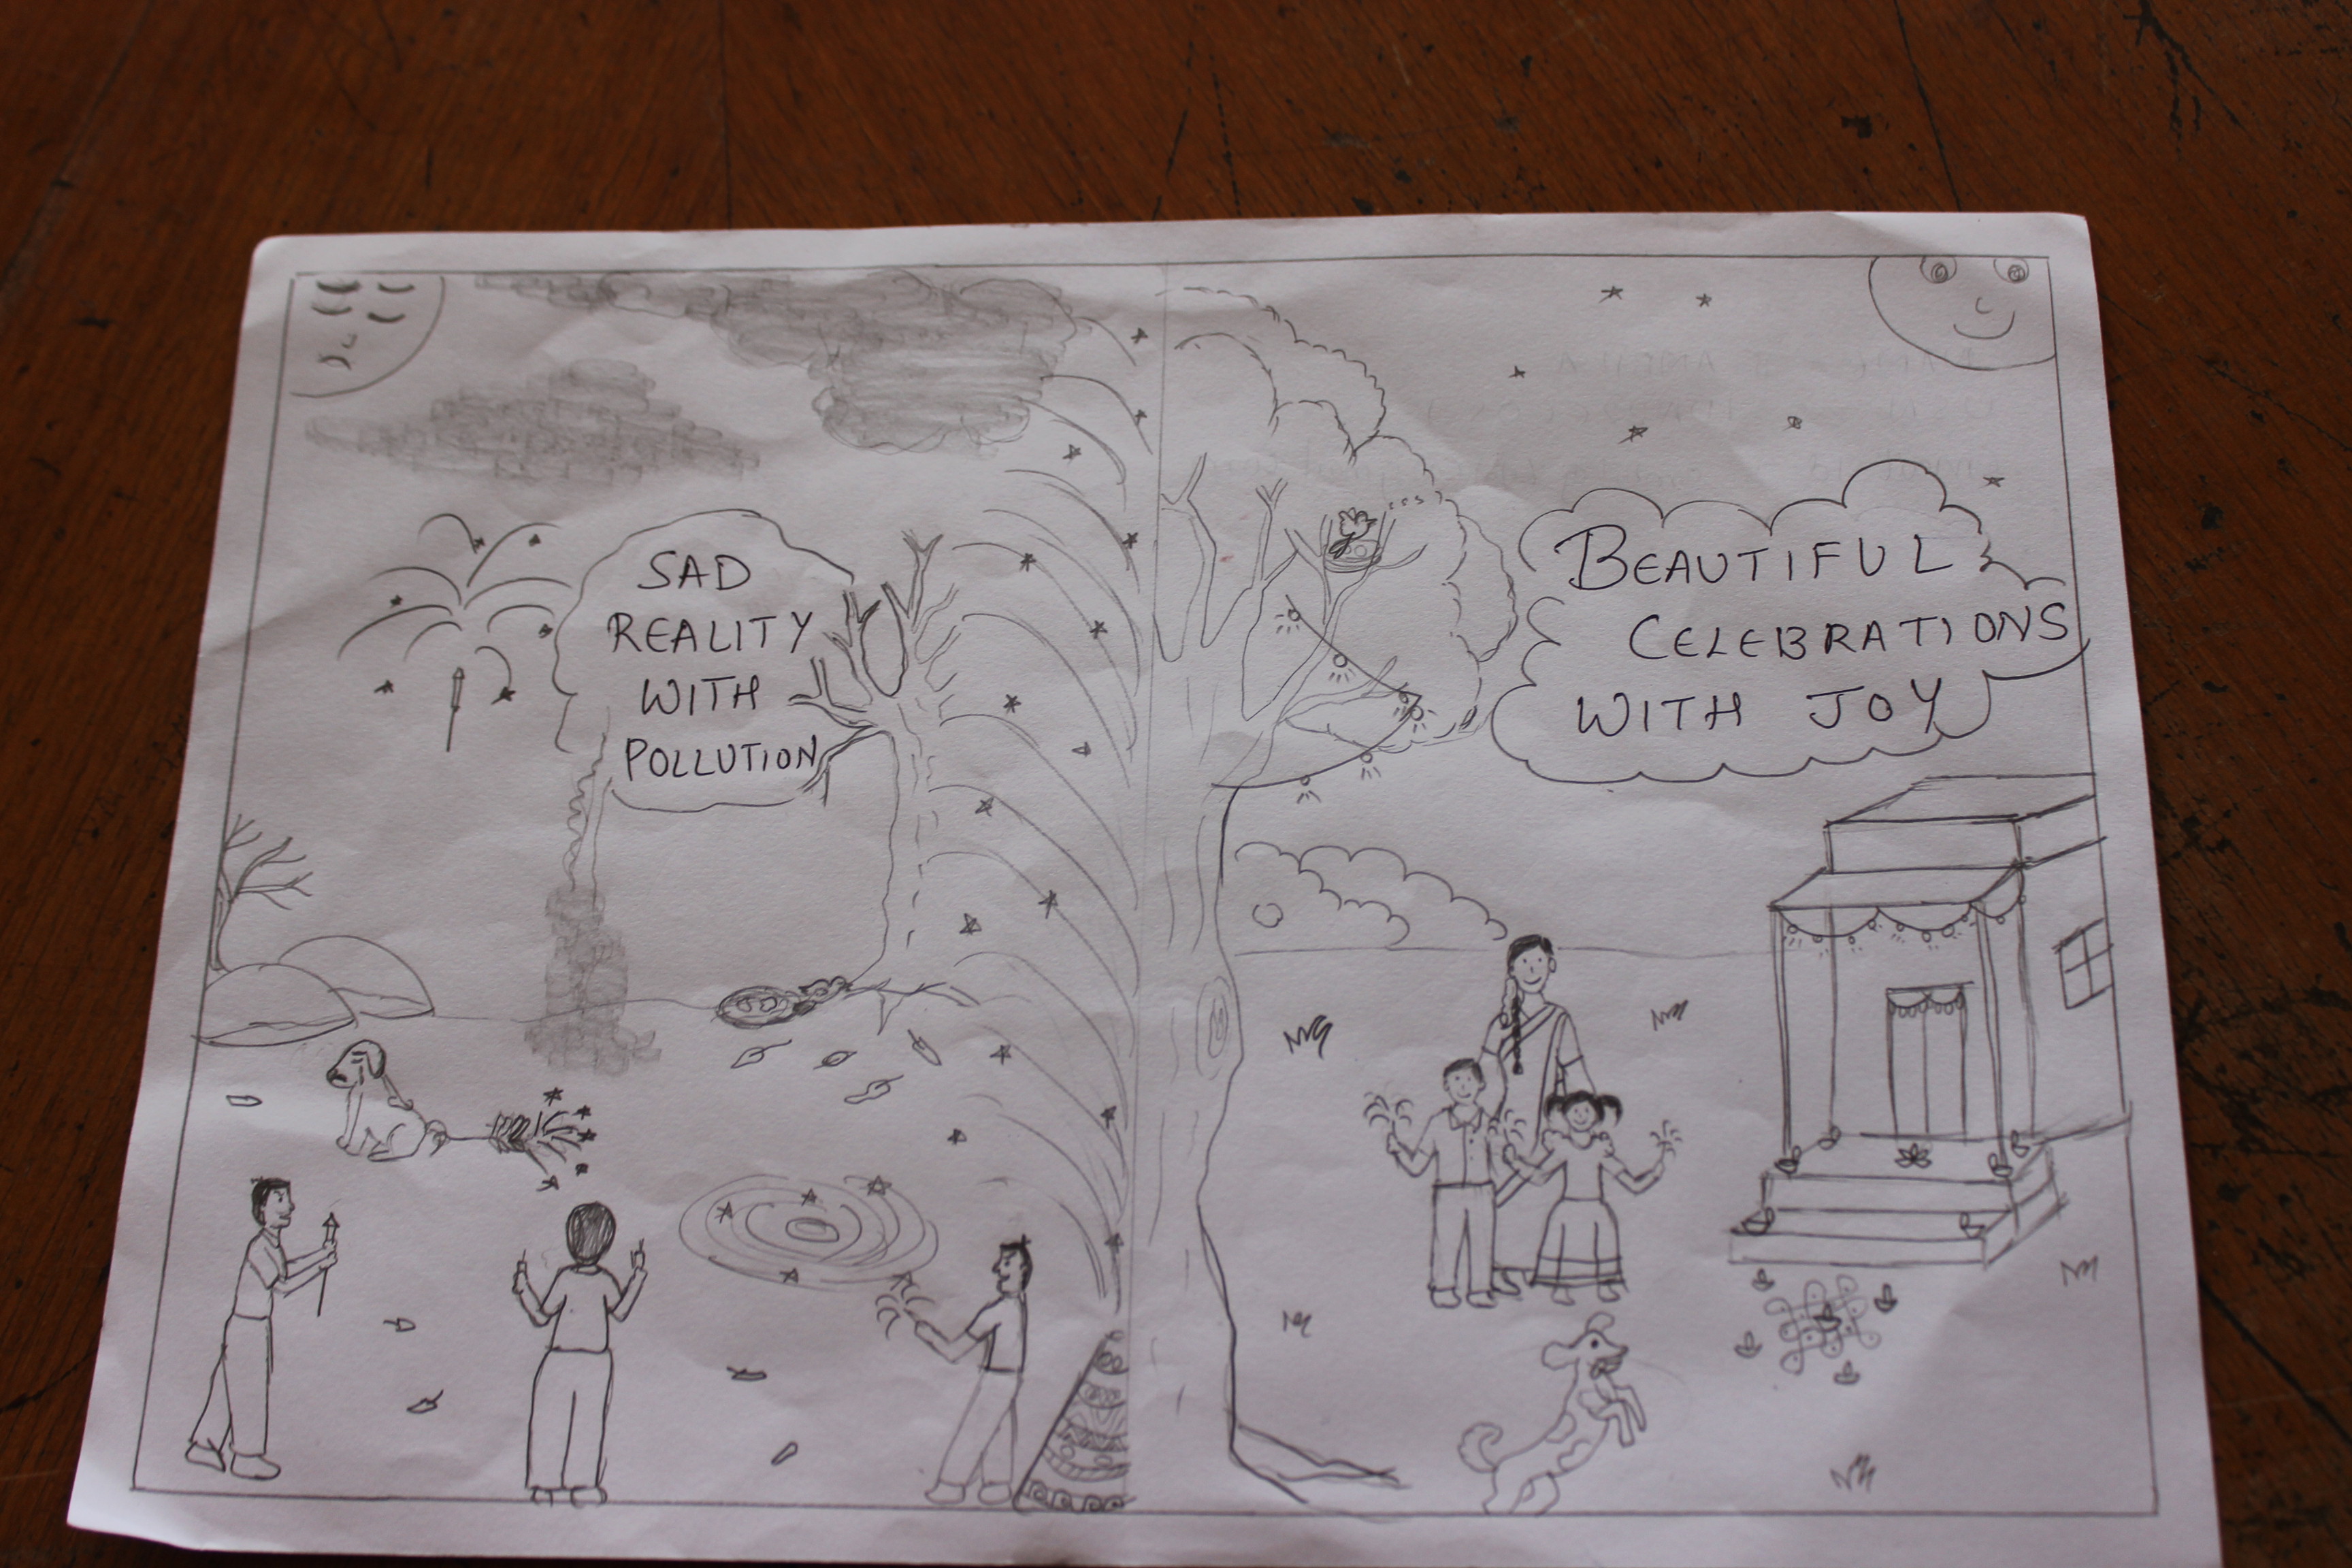 SAD
REALITY
WITH
POLLUTION
BEAUTIFUL
CELEBRATIONS
WITH JOY